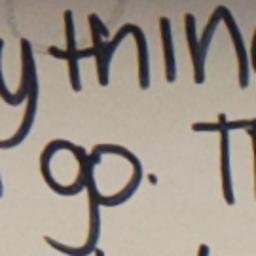 ythin
go. T